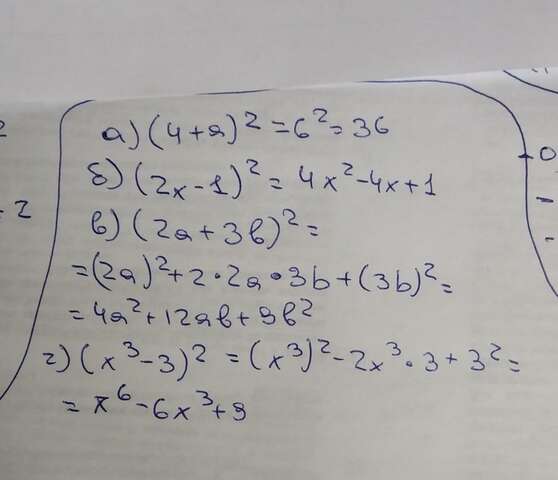 а) (4+a)² = 6² = 36
б) (2x-1)² = 4x²-4x+1
в) (2a+3b)² =
= (2a)² + 2·2a·3b + (3b)² =
= 4a² + 12ab + 9b²
г) (x³-3)² = (x³)² - 2x³·3 + 3² =
= x⁶ - 6x³ + 9
2
2
0